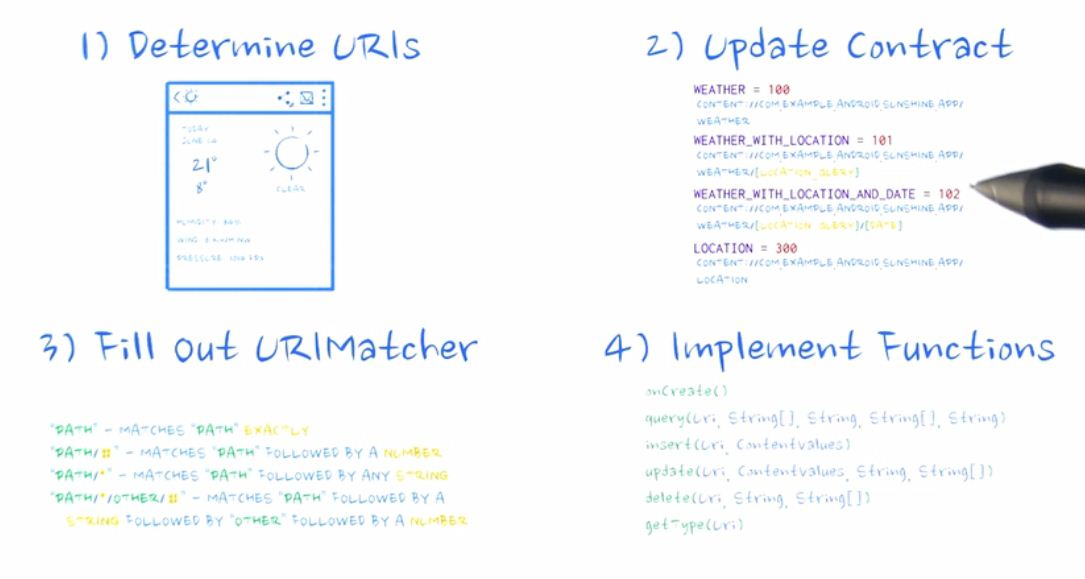 1) Determine URIs
TODAY
JUNE
21°
8°
CLEAR
HUMIDITY:
WIND:
PRESSURE:
2) Update Contract
WEATHER = 100
CONTENT://COM.EXAMPLE.ANDROID.SUNSHINE.APP/
WEATHER
WEATHER_WITH_LOCATION = 101
CONTENT://COM.EXAMPLE.ANDROID.SUNSHINE.APP/
WEATHER/[LOCATION_QUERY]
WEATHER_WITH_LOCATION_AND_DATE = 102
CONTENT://COM.EXAMPLE.ANDROID.SUNSHINE.APP/
WEATHER/[LOCATION_QUERY]/[DATE]
LOCATION = 300
CONTENT://COM.EXAMPLE.ANDROID.SUNSHINE.APP/
LOCATION
3) Fill out URIMatcher
"PATH" - MATCHES "PATH" EXACTLY
"PATH/#" - MATCHES "PATH" FOLLOWED BY A NUMBER
"PATH/*" - MATCHES "PATH" FOLLOWED BY ANY STRING
"PATH/*/OTHER/#" - MATCHES "PATH" FOLLOWED BY A
STRING FOLLOWED BY "OTHER" FOLLOWED BY A NUMBER
4) Implement Functions
onCreate()
query(Uri, String[], String, String[], String)
insert(Uri, ContentValues)
update(Uri, ContentValues, String, String[])
delete(Uri, String, String[])
getType(Uri)